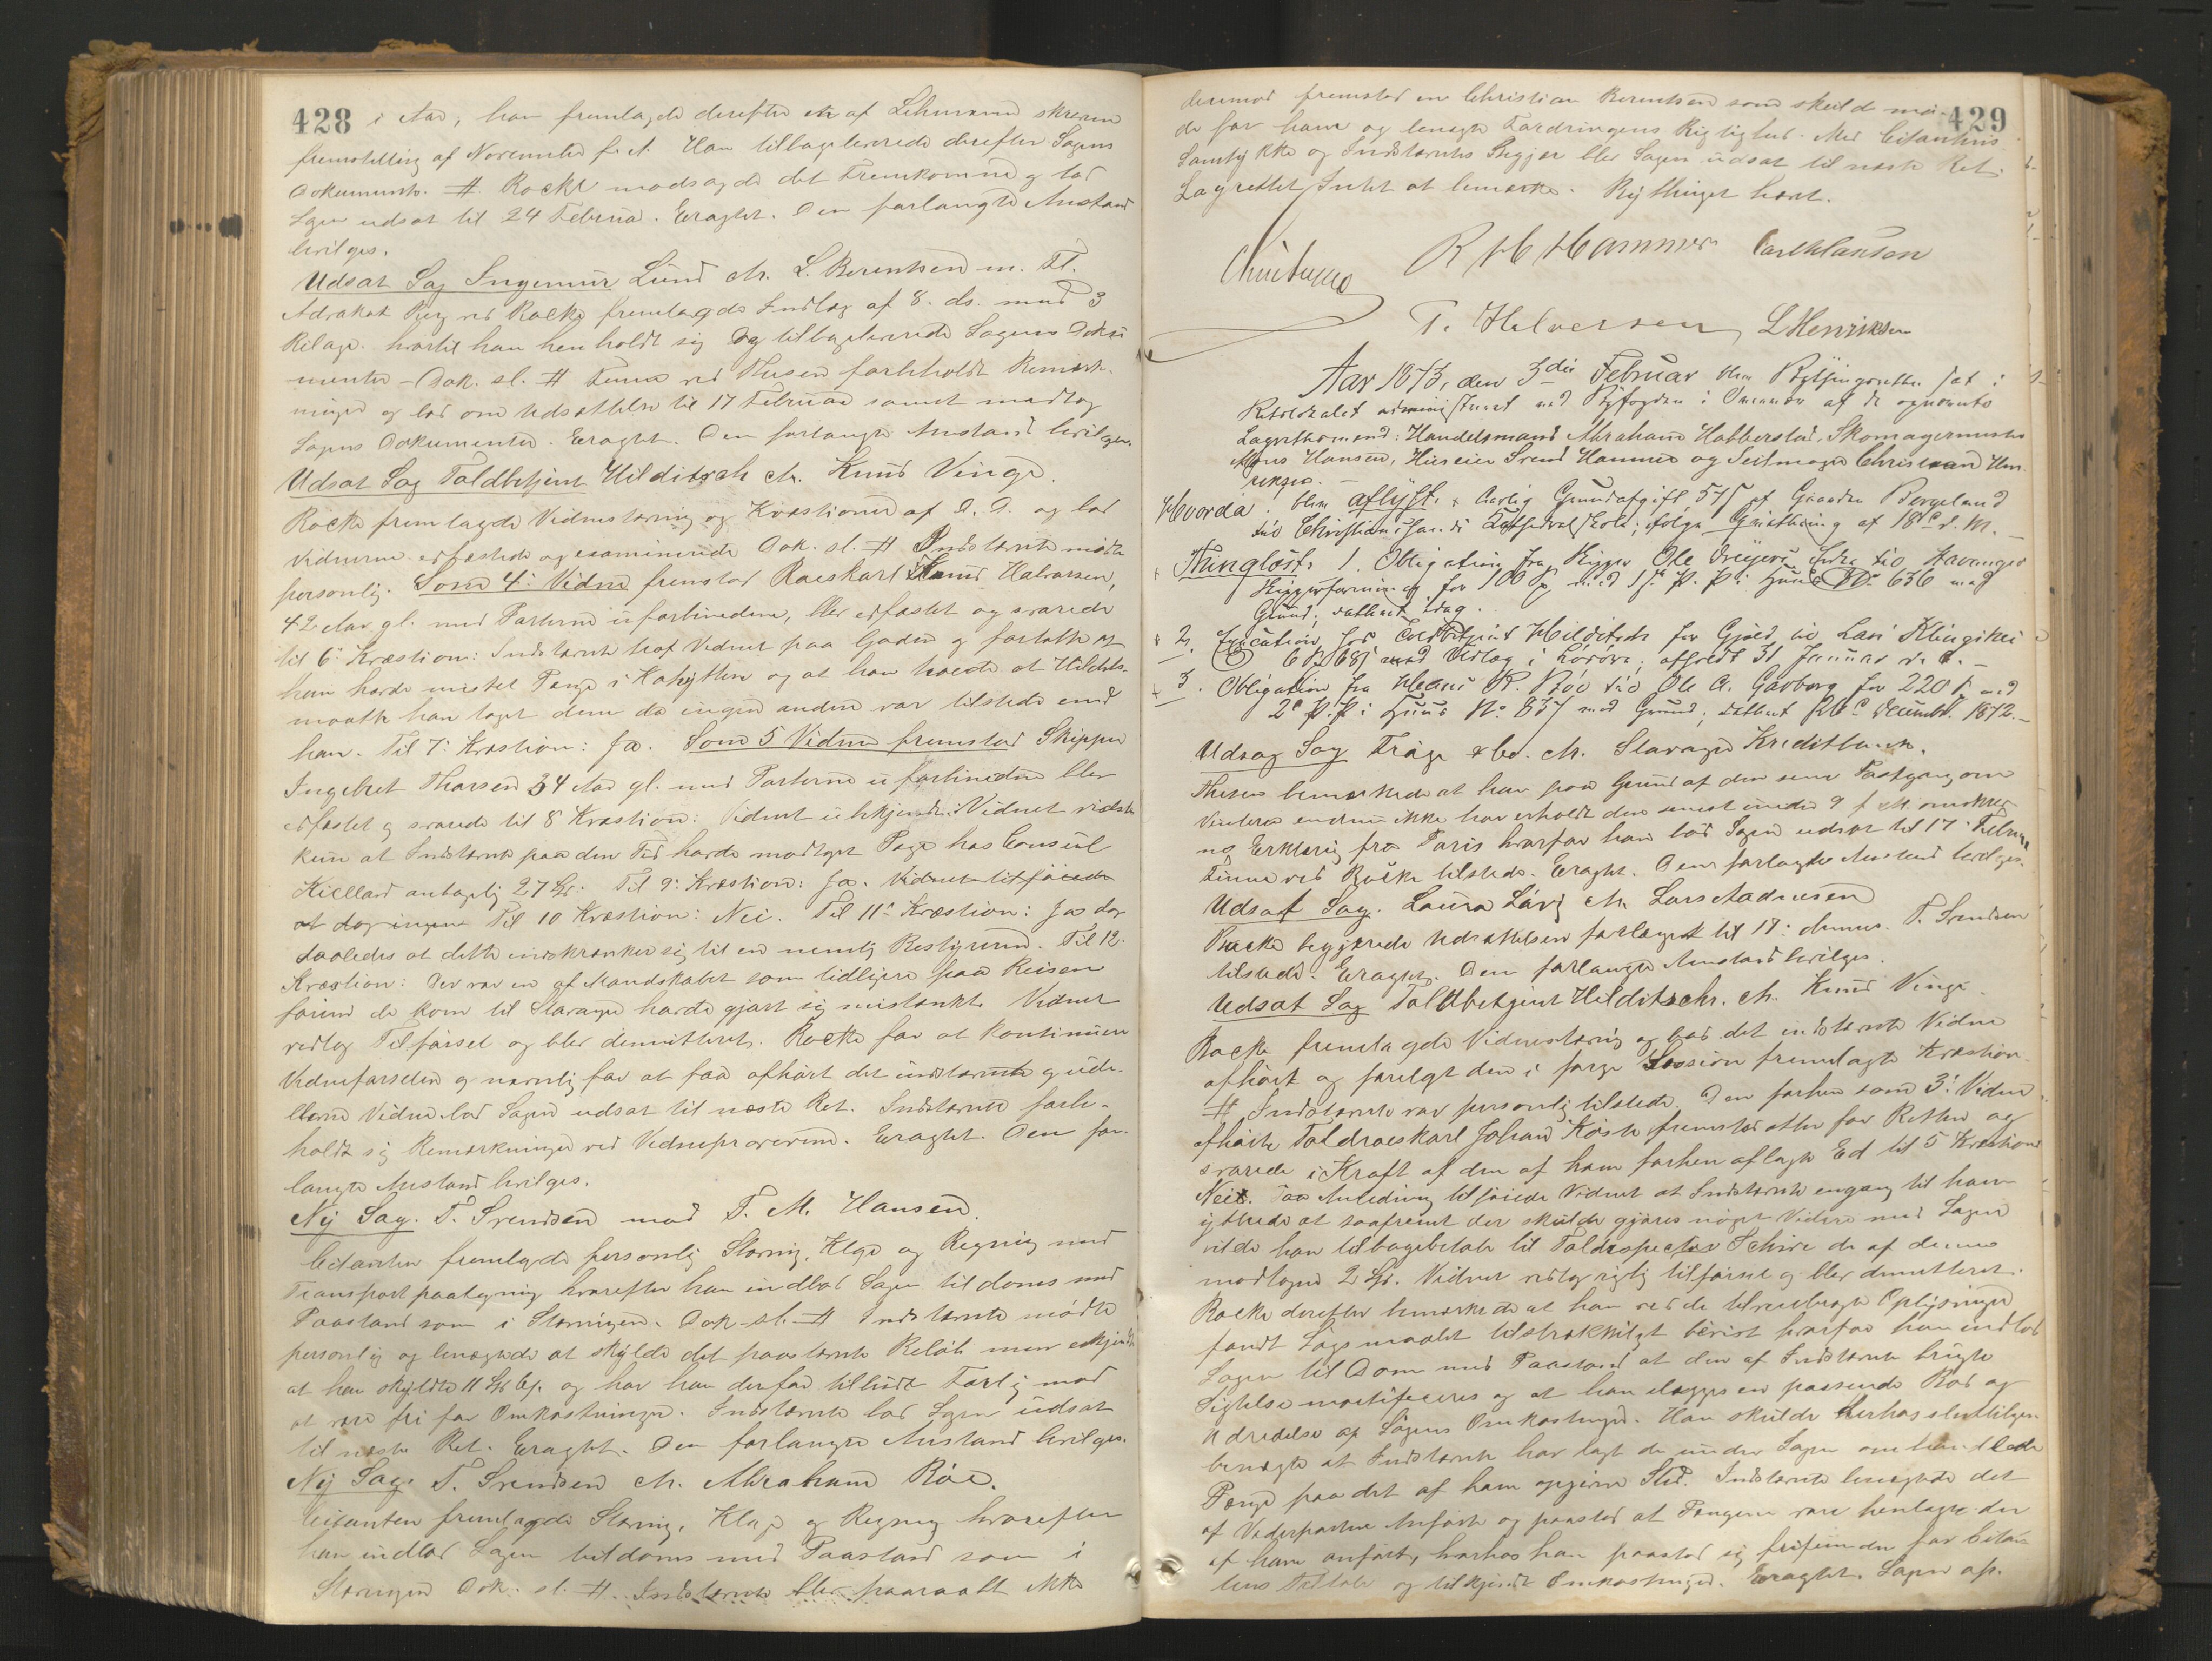 428 i Aar, han fremlagde derefter en af Lehmann skreven
fremstilling af November f. A. Han tilbageleverede derefter Sagens
Dokumenter. # Racke modsagde det Fremkomne og lod
Sagen udsat til 24 Februar. Eragtet. Den forlangte Anstand
bevilges.
Udsat Sag Ingemur Lund ctr. L. Berentsen m. Fl.
Advokat Berg ved Racke fremlagde Indlæg af 8. ds. med 3
Bilage. hvortil han henholdt sig og tilbageleverede Sagens Doku
menter - Dok. sl. # ved Thesen forbeholdt Bemærk-
ninger og lod om Udsættelse til 17 Februar samt modtog
Sagens Dokumenter. Eragtet. Den forlangte Anstand bevilges.
Udsat Sag Toldbetjent Hilditsch ctr. Knud Vinge.
Racke fremlagde Vidnestævning og Kvæstioner af D. D. og lod
Vidnerne edfæstede og examinerede Dok. sl. # Indstævnte mødte
personlig. Som 4: Vidne fremstod Knud Halvorsen,
42 Aar gl. med Parterne uforbunden, blev edfæstet og svarede
til 6: Kvæstion: Indstævnte traf Vidnet paa Gaden og fortalte at
han havde mistet Penge i Kahytten og at han troede at Hilditsch
maatte have taget dem da ingen anden var tilstede end
han. Til 7: Kvæstion: Ja. Som 5 Vidne fremstod Skipper
Ingebret Tharsen 34 Aar gl. med Parterne uforbunden blev
edfæstet og svarede til 8 Kvæstion: Vidnet ubekjendt. Vidnet vidste
kun at Indstævnte paa den Tid havde modtaget Penge hos Consul
Kielland antagelig 27 Spd: Til 9: Kvæstion: Ja. Vidnet tilføiede
at dog ingen Til 10 Kvæstion: Nei. Til 11: Kvæstion: Ja dog
saaledes at dette indskrænker sig til en nemlig Bestyreren. Til 12:
Kvæstion: Der var en af Mandskabet som tidligere paa Reisen
førend de kom til Stavanger havde gjort sig mistænkt. Vidnet
vedtog Tilførsel og blev dimitteret. Racke for at kontinuere
Vidneførselen og navnlig for at faa afhørt det indstævnte og ude-
blevne Vidne lod Sagen udsat til næste Ret. Indstævnte forbe-
holdt sig Bemærkninger ved Vidneprovene. Eragtet. Den for-
langte Anstand bevilges.
Ny Sag. T. Svendsen mod T. M. Hansen.
Citanten fremlagde personlig Stævning, Klage og Regning med
Transportpaategning hvorefter han indlod Sagen til doms med
Paastand som i Stævningen. Dok. sl. # Indstævnte mødte
personlig og benægtede at skylde det paastævnte Beløb men erkjendte
at han skyldte 11 Spd 6 s. og har han derfor tilbudt Forlig mod
at være fri for Omkostninger. Indstævnte lod Sagen udsat
til næste Ret. Eragtet. Den forlangte Anstand bevilges.
Ny Sag. T. Svendsen ctr. Abraham Röe.
Citanten fremlagde Stævning, Klage og Regning hvorefter
han indlod Sagen til doms med Paastand som i
Stævningen Dok. sl. #. Indstævnte blev paaraabt ikke
429
derimod fremstod en Christian Berentsen som skulde mø-
de for ham og benægte Fordringens Rigtighed. Med Citantens
Samtykke og Indstævntes Begjær blev Sagen udsat til næste Ret.
Lagrettet Intet at bemærke. Bythinget hævt.
R H Hammer Carl Clausen
T. Halversen, L Henriksen
Aar 1873, den 3die Februar blev Bythingsretten sat i
Retslokalet administreret ved Byfogden i Overvær af de opnævnte
Lagrettesmænd: Handelsmand Abraham Habberstad, Skomagermester
Mons Hansen, Huseier Svend Hammer og Seilmager Christian Hen-
riksen. -
Hvorda blev aflyst. Aarlig Grundafgift 57 s af Gaarden Bergeland
til Christiansands Kathedralskole, ifølge Qvittering af 18de d. M. -
Thinglöst: 1. Obligation fra Rigger Ole til Stavanger
Skipperforening for 100 Sp med 1ste P. P. i Huus No 636 med
Grund, dateret idag.
2. Execution hos Toldbetjent Hilditsch for Gjæld til Lars Klingshei
6 Sp 68 s med Udlæg i Løsøre; afholdt 31 Januar d. A. -
3. Obligation fra Hans P. Röe til Ole A. Garborg for 220 Sp med
2den P. P. i Huus No 837 med Grund; dateret 26de Decembr. 1872. -
Udsat Sag Fraas & Co. ctr. Stavanger Kreditbank.
Thesen bemærkede at han paa Grund af den sene Postgang om
Vinteren endnu ikke har erholdt den senest under 9 f. M. omskrev
ne Erklæring fra Paris hvorfor han lod Sagen udsat til 17: Februar
ved Racke tilstede. Eragtet. Den forlangte Anstand bevilges.
Udsat Sag. Laura Lövig ctr. Lars Andreesen
Racke begjærede Udsættelsen forlænget til 17: dennes. T. Svendsen
tilstede. Eragtet. Den forlangte Anstand bevilges.
Udsat Sag Toldbetjent Hilditsch. ctr. Knud Vinge.
Racke fremlagde Vidnestævning og bad det indstævnte Vidne
afhørt og forelagt den i forrige Session fremlagte Kvæstion.
# Indstævnte var personlig tilstede. Den forhen som 3: Vidne
afhørte Toldroeskarl Johan Koste fremstod atter for Retten og
svarede i Kraft af den af ham forhen aflagte Ed til 5 Kvæstion
Nei. Paa Anledning tilføiede Vidnet at Indstævnte engang til ham
yttrede at saafremt der skulde gjøres noget Videre med Sagen
vilde han tilbagebetale til Toldinspecteur Schive de af denne
modtagne 2 Spd. Vidnet vedtog rigtig tilførsel og blev dimitteret.
Racke derefter bemærkede at han ved de tilveiebragte Oplysninger
fandt Søgsmaalet tilstrækkeligt bevist hvorfor han indlod
Sagen til Dom med Paastand at den af Indstævnte brugte
Sigtelse mortificeres og at han ilægges en passende Bod og
Udredelse af Sagens Omkostninger. Han skulde derhos sluttelig
benægte at Indstævnte har lagt de under Sagen omhandlede
Penge paa det af ham opgivne Sted. Indstævnte benægtede det
af Vederparten Anførte og paastod at Pengene vare henlagte der
af ham anført, hvorhos han paastod sig frifunden for Citan
tens Tiltale og tilkjendt Omkostninger. Eragtet. Sagen op.